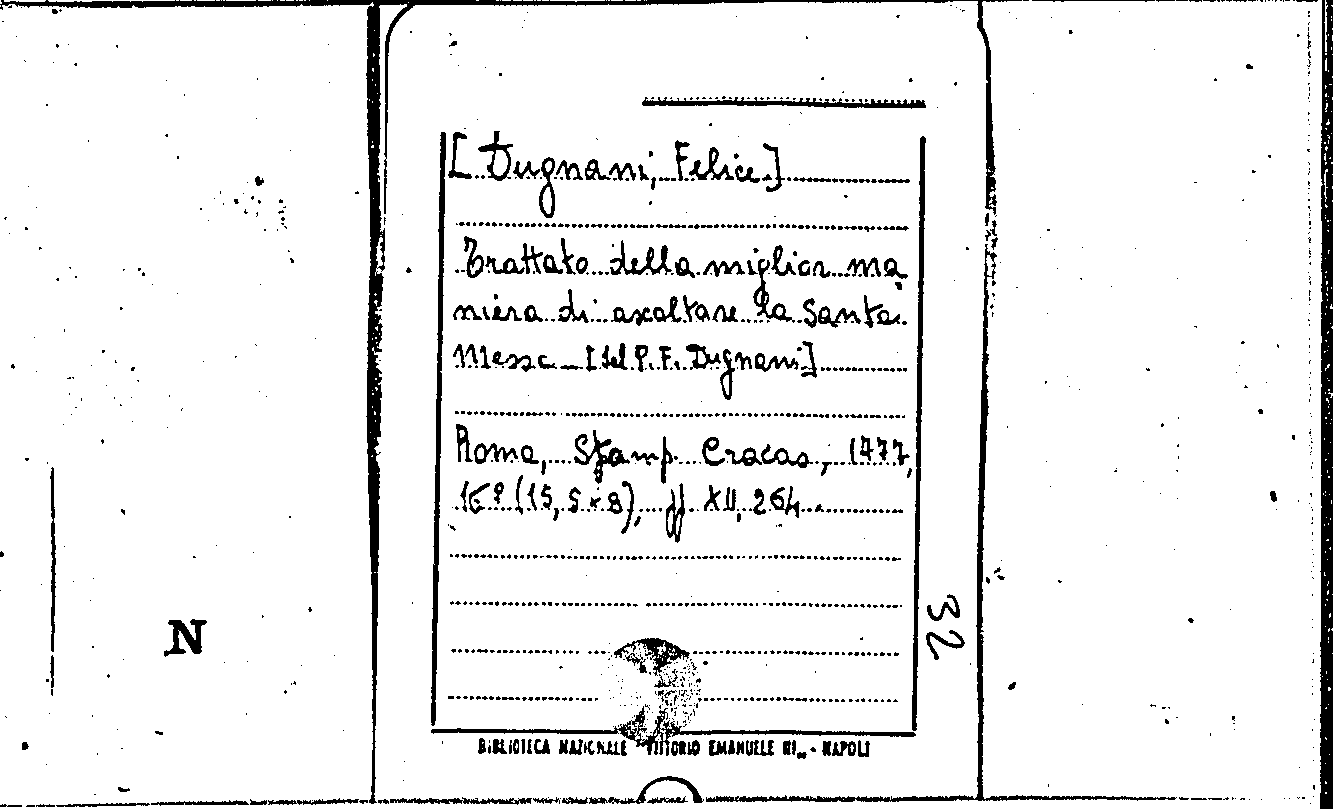 [Dugnani, Felice.]
Trattato della miglior ma
niera di ascoltare la Santa
Messa _ [del P. F. Dugnani]
Roma, Stamp. Cracas, 1777,
16º (15,5 x 8), pp. XII, 264.
32
N
BIBLIOTECA NAZIONALE "VITTORIO EMANUELE III" - NAPOLI